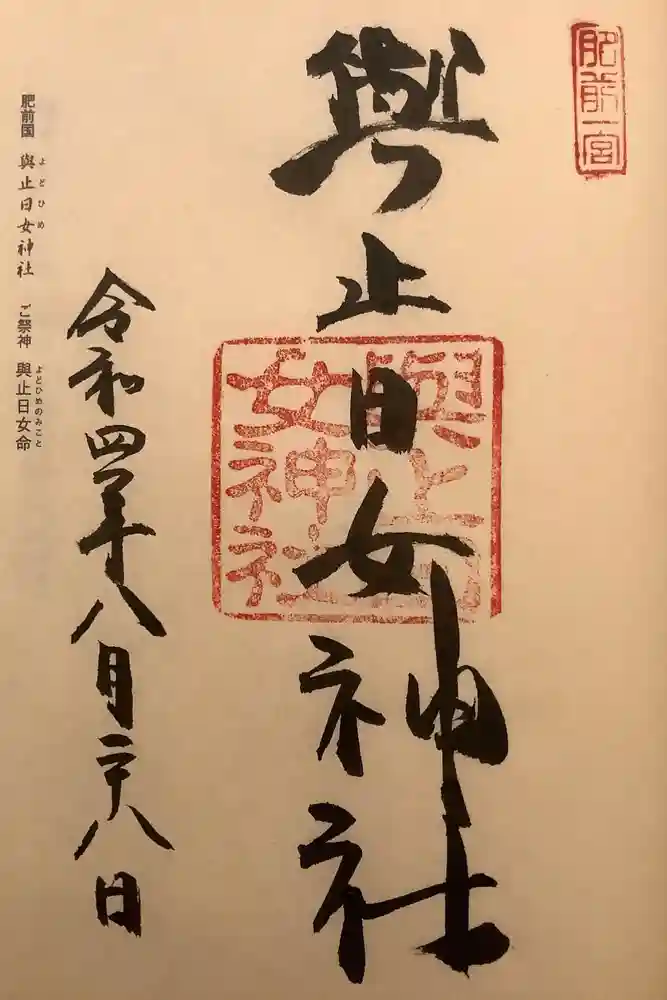 肥前一宮
與止日女神社
與止日女神社
令和四年八月二十八日
肥前国 與止日女神社 ご祭神 與止日女命
よどひめ
よどひめのみこと